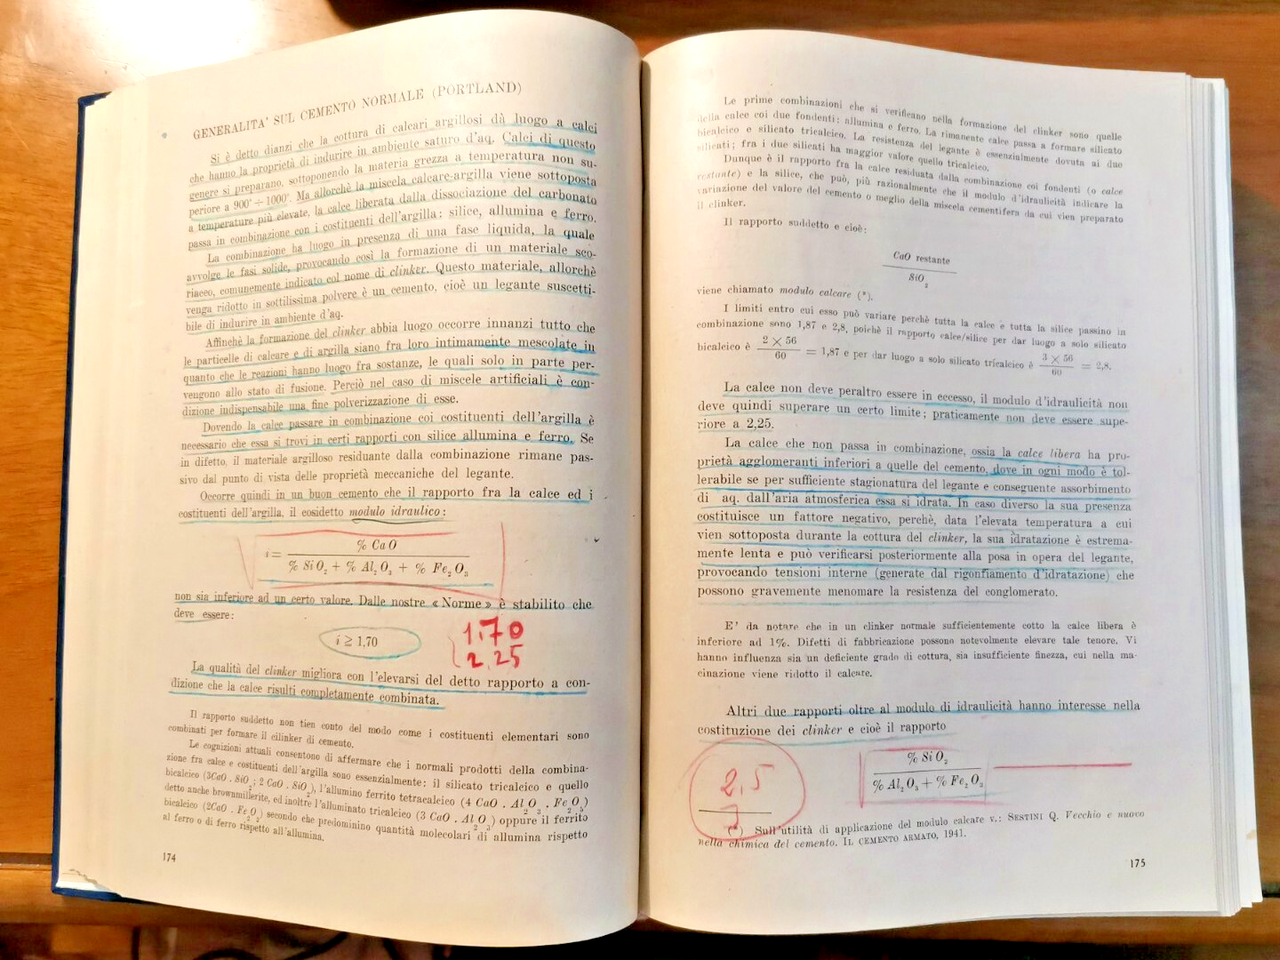 GENERALITA' SUL CEMENTO NORMALE (PORTLAND)
Si è detto dianzi che la cottura di calcari argillosi dà luogo a calci
che hanno la proprietà di indurire in ambiente saturo d'aq. Calci di questo
genere si preparano, sottoponendo la materia grezza a temperatura non su-
periore a 900° ÷ 1000°. Ma allorchè la miscela calcare-argilla viene sottoposta
a temperature più elevate, la calce liberata dalla dissociazione del carbonato
passa in combinazione con i costituenti dell'argilla: silice, allumina e ferro.
La combinazione ha luogo in presenza di una fase liquida, la quale
avvolge le fasi solide, provocando così la formazione di un materiale sco-
riaceo, comunemente indicato col nome di clinker. Questo materiale, allorchè
venga ridotto in sottilissima polvere è un cemento, cioè un legante suscetti-
bile di indurire in ambiente d'aq.
Affinchè la formazione del clinker abbia luogo occorre innanzi tutto che
le particelle di calcare e di argilla siano fra loro intimamente mescolate in
quanto che le reazioni hanno luogo fra sostanze, le quali solo in parte per-
vengono allo stato di fusione. Perciò nel caso di miscele artificiali è con-
dizione indispensabile una fine polverizzazione di esse.
Dovendo la calce passare in combinazione coi costituenti dell'argilla è
necessario che essa si trovi in certi rapporti con silice allumina e ferro. Se
in difetto, il materiale argilloso residuante dalla combinazione rimane pas-
sivo dal punto di vista delle proprietà meccaniche del legante.
Occorre quindi in un buon cemento che il rapporto fra la calce ed i
costituenti dell'argilla, il cosidetto modulo idraulico:
i = % CaO / % SiO2 + % Al2O3 + % Fe2O3
non sia inferiore ad un certo valore. Dalle nostre « Norme » è stabilito che
deve essere:
i ≥ 1,70
1.70
2.25
La qualità del clinker migliora con l'elevarsi del detto rapporto a con-
dizione che la calce risulti completamente combinata.
Il rapporto suddetto non tien conto del modo come i costituenti elementari sono
combinati per formare il cilinker di cemento.
Le cognizioni attuali consentono di affermare che i normali prodotti della combina-
zione fra calce e costituenti dell'argilla sono essenzialmente: il silicato tricalcico e quello
bicalcico (3CaO . SiO2; 2 CaO . SiO2), l'allumino ferrito tetracalcico (4 CaO . Al2O3 . Fe2O3)
detto anche brownmillerite, ed inoltre l'alluminato tricalcico (3 CaO . Al2O3) oppure il ferrito
bicalcico (2CaO . Fe2O3) secondo che predominino quantità molecolari di allumina rispetto
al ferro o di ferro rispetto all'allumina.
174
Le prime combinazioni che si verificano nella formazione del clinker sono quelle
della calce coi due fondenti: allumina e ferro. La rimanente calce passa a formare silicato
bicalcico e silicato tricalcico. La resistenza del legante è essenzialmente dovuta ai due
silicati; fra i due silicati ha maggior valore quello tricalcico.
Dunque è il rapporto fra la calce residuata dalla combinazione coi fondenti (o calce
restante) e la silice, che può, più razionalmente che il modulo d'idraulicità indicare la
variazione del valore del cemento o meglio della miscela cementifera da cui vien preparato
il clinker.
Il rapporto suddetto e cioè:
CaO restante / SiO2
viene chiamato modulo calcare (*).
I limiti entro cui esso può variare perchè tutta la calce e tutta la silice passino in
combinazione sono 1,87 e 2,8, poichè il rapporto calce/silice per dar luogo a solo silicato
bicalcico è 2 × 56 / 60 = 1,87 e per dar luogo a solo silicato tricalcico è 3 × 56 / 60 = 2,8.
La calce non deve peraltro essere in eccesso, il modulo d'idraulicità non
deve quindi superare un certo limite; praticamente non deve essere supe-
riore a 2,25.
La calce che non passa in combinazione, ossia la calce libera ha pro-
prietà agglomeranti inferiori a quelle del cemento, dove in ogni modo è tol-
lerabile se per sufficiente stagionatura del legante e conseguente assorbimento
di aq. dall'aria atmosferica essa si idrata. In caso diverso la sua presenza
costituisce un fattore negativo, perchè, data l'elevata temperatura a cui
vien sottoposta durante la cottura del clinker, la sua idratazione è estrema-
mente lenta e può verificarsi posteriormente alla posa in opera del legante,
provocando tensioni interne (generate dal rigonfiamento d'idratazione) che
possono gravemente menomare la resistenza del conglomerato.
E' da notare che in un clinker normale sufficientemente cotto la calce libera è
inferiore ad 1%. Difetti di fabbricazione possono notevolmente elevare tale tenore. Vi
hanno influenza sia un deficiente grado di cottura, sia insufficiente finezza, cui nella ma-
cinazione viene ridotto il calcare.
Altri due rapporti oltre al modulo di idraulicità hanno interesse nella
costituzione dei clinker e cioè il rapporto
% SiO2 / % Al2O3 + % Fe2O3
2,5
(*) Sull'utilità di applicazione del modulo calcare v.: SESTINI Q. Vecchio e nuovo
nella chimica del cemento. IL CEMENTO ARMATO, 1941.
175